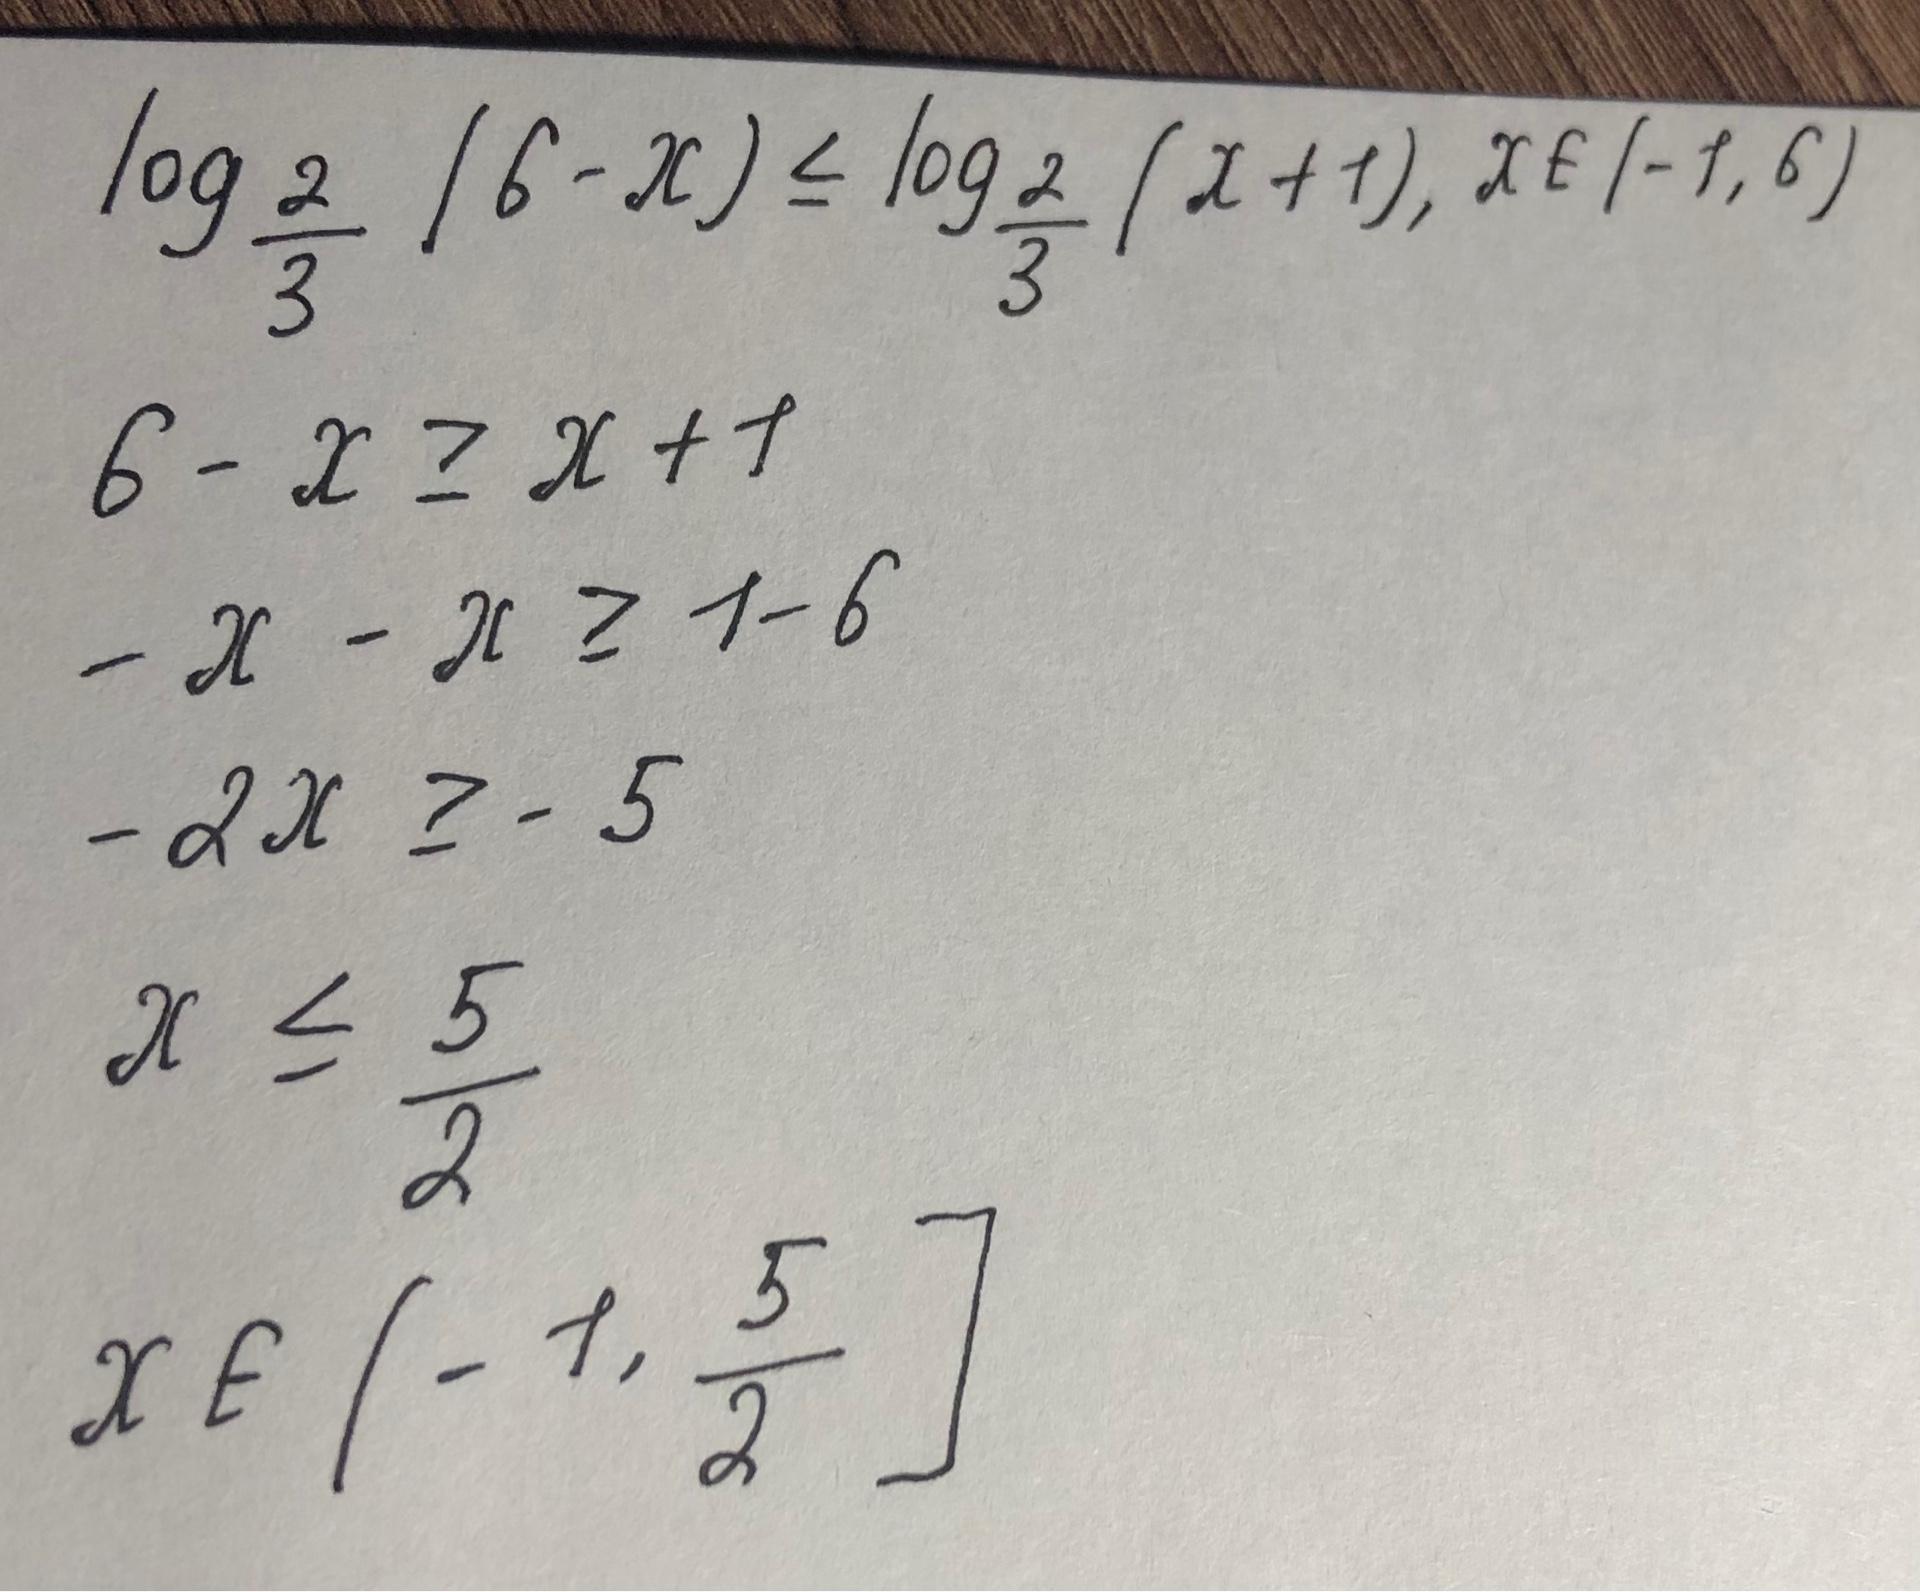 log_{2/3} (6-x) ≤ log_{2/3} (x+1), x∈(-1,6)
6-x ≥ x+1
-x-x ≥ 1-6
-2x ≥ -5
x ≤ 5/2
x∈(-1, 5/2]